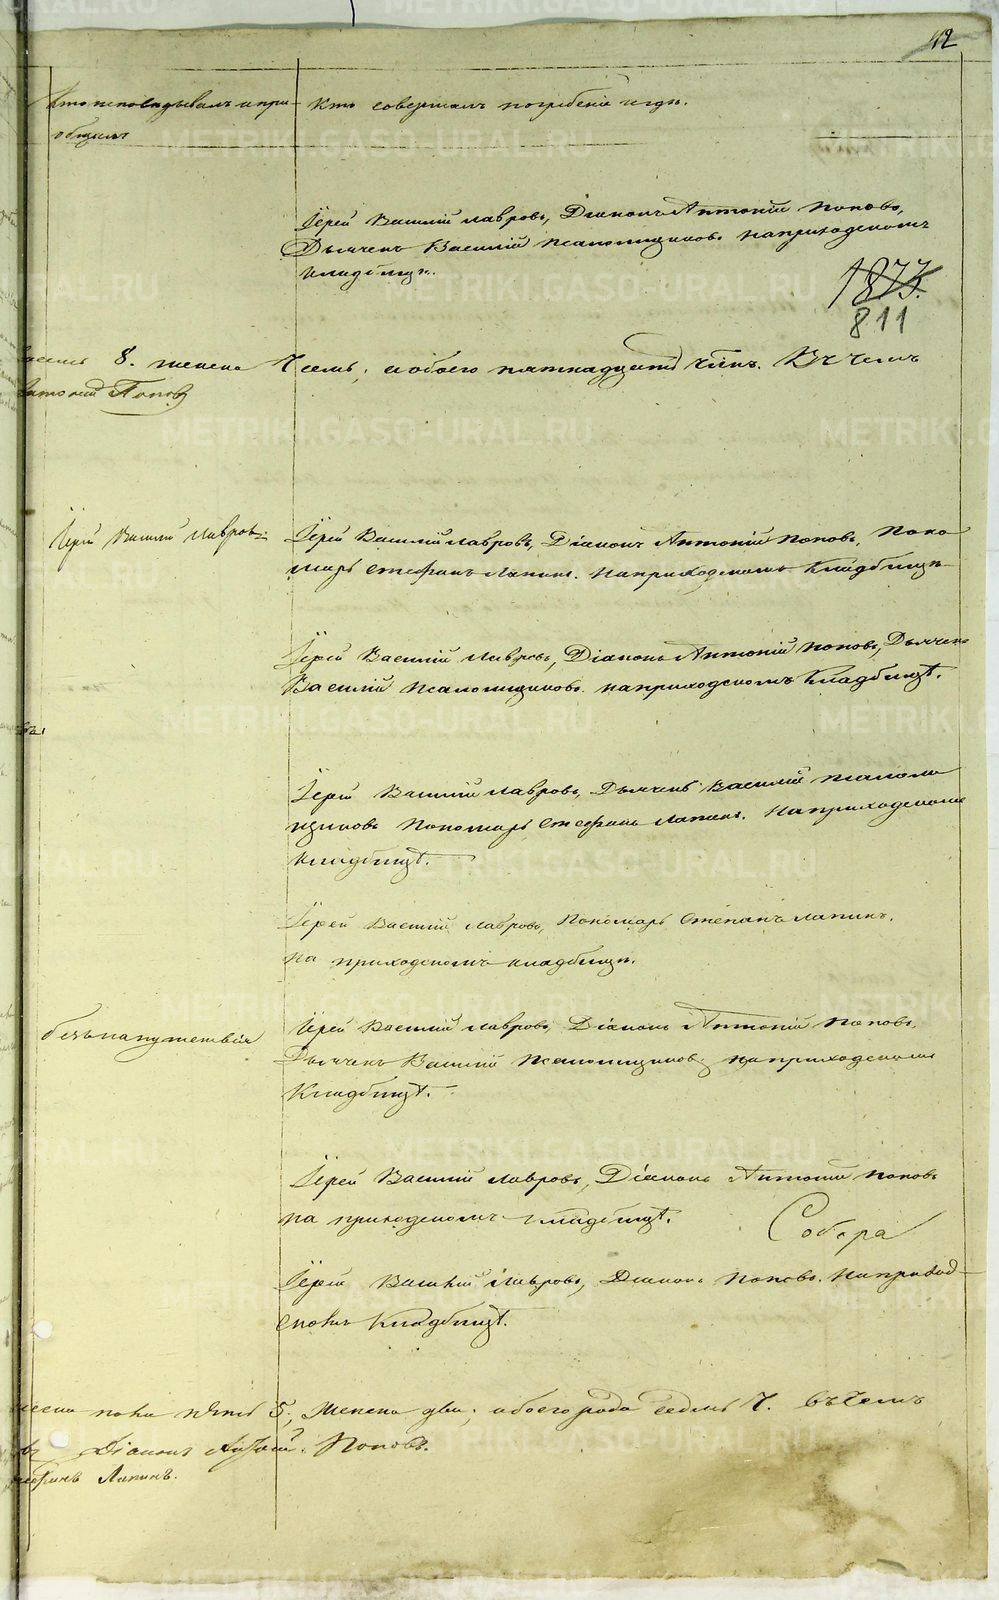 42
Кто исповѣдывалъ и прі-
общалъ
Кто совершалъ погребеніе и гдѣ.
Іерей Василій Лавровъ, Діаконъ Антоній Поповъ,
Дьячекъ Василій Псаломщиковъ на приходскомъ
кладбищѣ.
1873.
811
8. женска 7 семь, а обоего пятнадцать члнъ. Въ чемъ
Антоній Поповъ
Іерей Василій Лавровъ
Іерей Василій Лавровъ, Діаконъ Антоній Поповъ, Поно
марь Стефанъ Лапинъ. На приходскомъ кладбищѣ
Іерей Василій Лавровъ, Діаконъ Антоній Поповъ, Дьячекъ
Василій Псаломщиковъ на приходскомъ кладбищѣ.
Іерей Василій Лавровъ, Дьячекъ Василій Псалом
щиковъ Пономарь Стефанъ Лапинъ. На приходскомъ
кладбищѣ.
Іерей Василій Лавровъ, Пономарь Степанъ Лапинъ.
на приходскомъ кладбищѣ.
безъ напутствія
Іерей Василій Лавровъ, Діаконъ Антоній Поповъ,
Дьячекъ Василій Псаломщиковъ на приходскомъ
Кладбищѣ.
Іерей Василій Лавровъ, Діаконъ Антоній Поповъ
на приходскомъ кладбищѣ.
Собора
Іерей Василій Лавровъ, Діаконъ Поповъ. На приход-
скомъ Кладбищѣ.
пола пять 5, женска два, обоего рода седмь 7. Въ чемъ
Діаконъ Антоній Поповъ.
Стефанъ Лапинъ.
METRIKI.GASO-URAL.RU